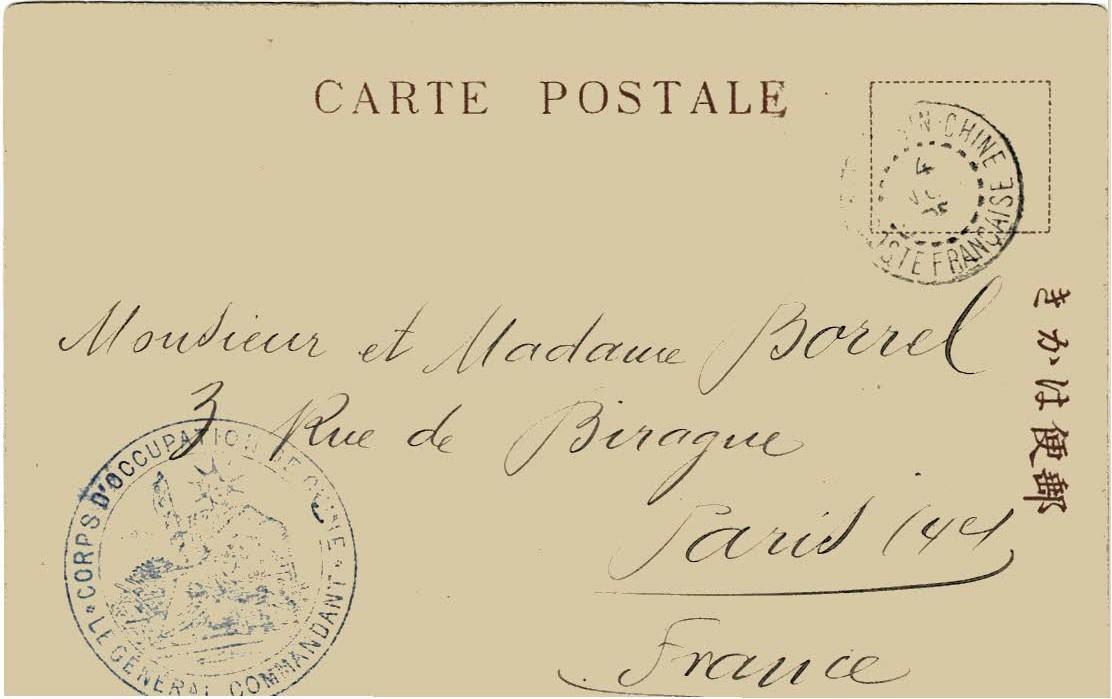 CARTE POSTALE
IN-CHINE
STE FRANÇAISE
きかは便郵
Monsieur et Madame Borrel
3 Rue de Birague
Paris
France
CORPS D'OCCUPATION DE CHINE
LE GÉNÉRAL COMMANDANT